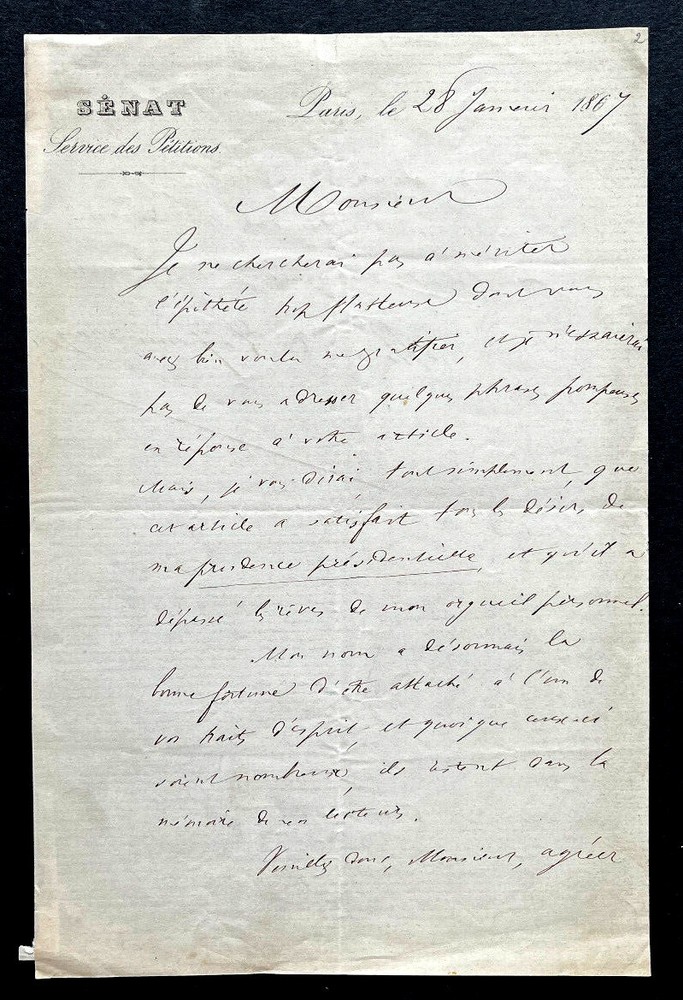 2
SÉNAT
Service des Pétitions.
Paris, le 28 Janvier 1867
Monsieur
Je ne chercherai pas à mériter
l'épithète trop flatteuse dont vous
avez bien voulu me gratifier, et je n'essaierai
pas de vous adresser quelques phrases pompeuses
en réponse à votre article.
Mais, je vous dirai, tout simplement, que
cet article a satisfait tous les désirs de
ma prudence présidentielle, et qu'il a
dépassé les rêves de mon orgueil personnel.
Mon nom a désormais la
bonne fortune d'être attaché à l'un de
vos traits d'esprit, et quoique ceux-ci
soient nombreux, ils restent dans la
mémoire de vos lecteurs.
Veuillez donc, Monsieur, agréer